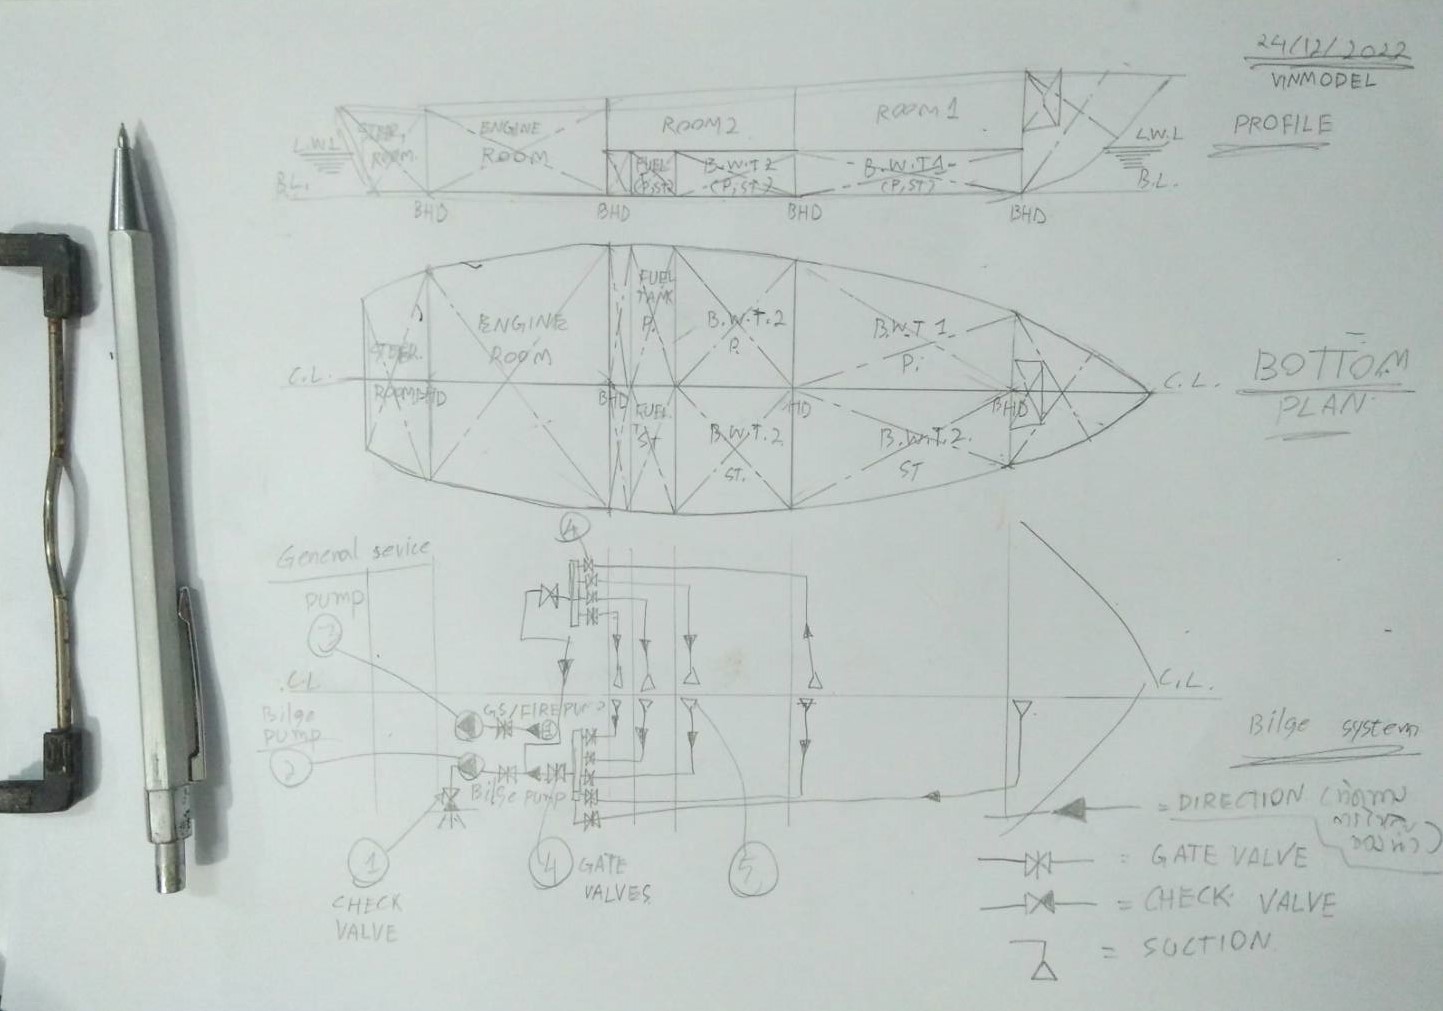 24/12/2022
VINMODEL
PROFILE
STEER.
ROOM
ENGINE
ROOM
ROOM 2
ROOM 1
L.W.L
L.W.L
B.L.
B.L.
FUEL
(P,ST)
B.W.T.2
(P,ST)
B.W.T 1
(P,ST)
BHD
BHD
BHD
BHD
FUEL
TANK
P.
ENGINE
ROOM
B.W.T.2
P.
B.W.T 1
P.
STEER.
ROOM BHD
BHD
BHD
C.L.
C.L.
BOTTOM
PLAN
FUEL
T.
ST
B.W.T.2
ST.
B.W.T.2.
ST
General sevice
pump
3
4
C.L.
C.L.
Bilge
pump
2
GS/FIRE PUMP
Bilge pump
Bilge system
1
CHECK
VALVE
4
GATE
VALVES
5
= DIRECTION (ทิศทาง
การไหล
ของน้ำ)
= GATE VALVE
= CHECK VALVE
= SUCTION